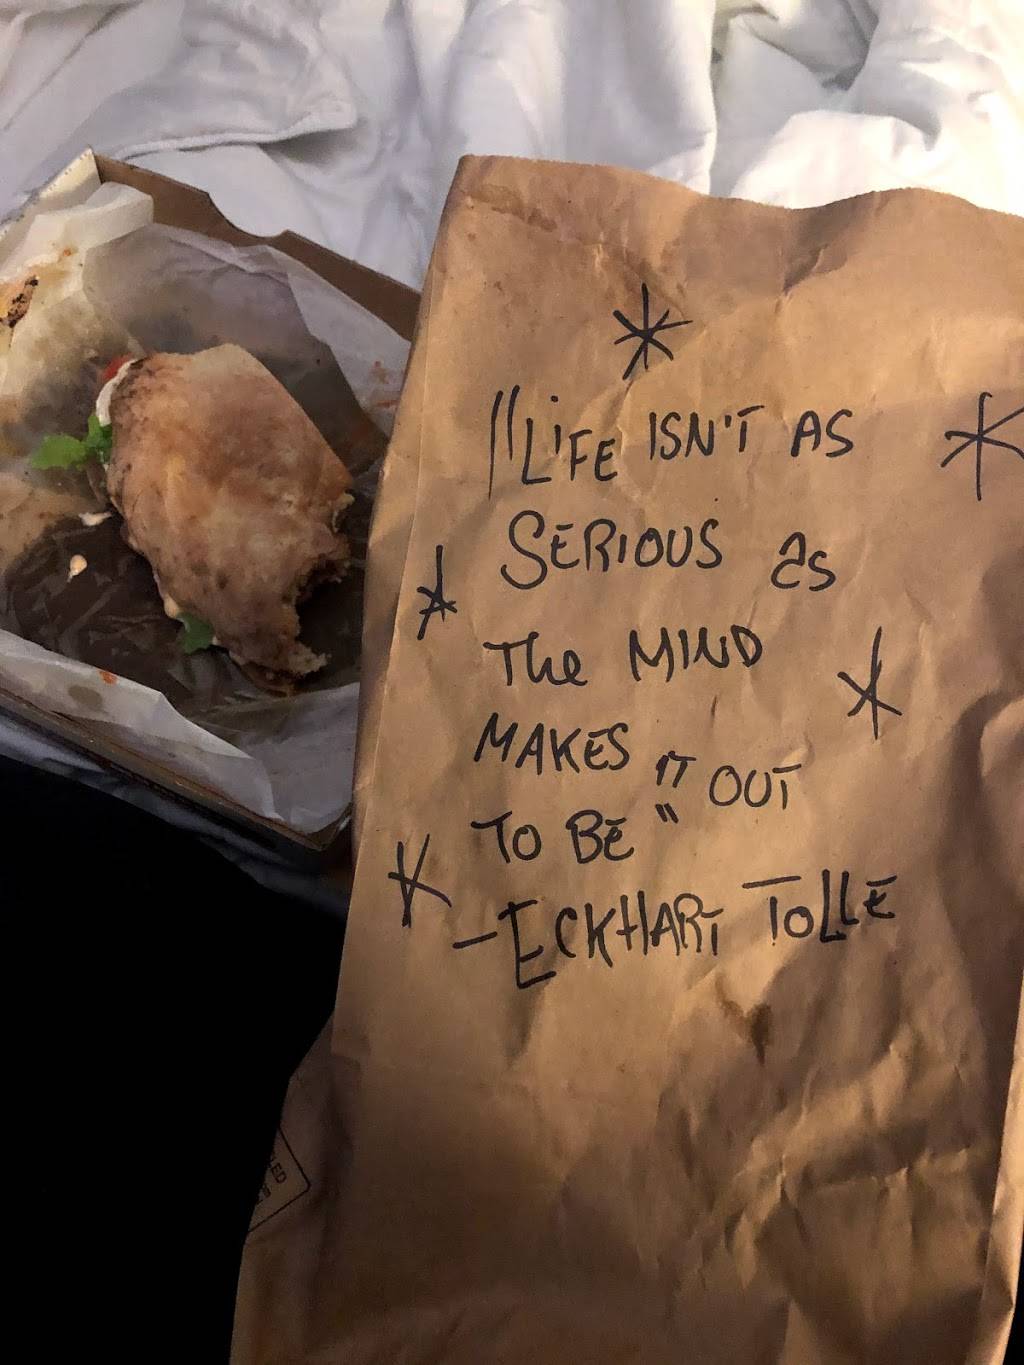 "LiFE ISN'T AS
SERIOUS as
The MIND
MAKES IT OUT
TO BE"
-ECKHART TOLLE